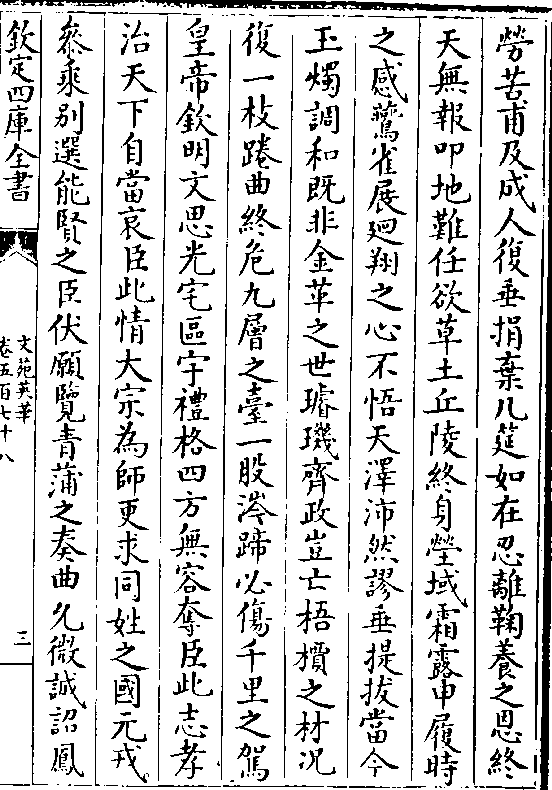 勞苦甫及成人復垂捐棄几筵如在忍離鞠養之恩終
天無報叩地難任欲草土丘陵終身塋域霜露申履時
之感鸎雀展廻翔之心不悟天澤沛然謬垂提拔當今
玉燭調和既非金革之世璿璣齊政豈亡梧檟之材况
復一枝踡曲終危九層之臺一股涔蹄必傷千里之駕
皇帝欽明文思光宅區宇禮格四方無容奪臣此志孝
治天下自當哀臣此情大宗為師更求同姓之國元戎
叅乘别選能賢之臣伏願覽青蒲之奏曲允微誠詔鳳
欽定四庫全書
文苑英華
卷五百七十八
三